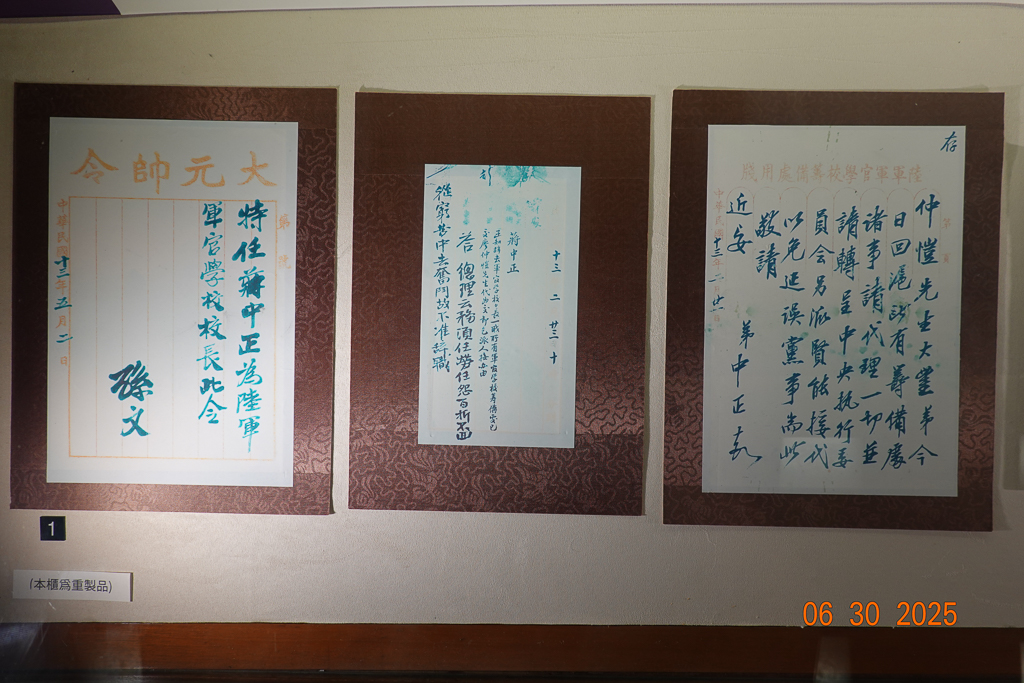 大元帥令
第 號
特任蔣中正為陸軍
軍官學校校長此令
孫文
中華民國十三年五月二日
十三 二 廿三 十
蔣中正
交廖仲愷先生代為交卸已派人接安由
答 總理云務須任勞任怨百折不回
從窮苦中去奮鬥故不准辭職
存
陸軍軍官學校籌備處用牋
仲愷先生大鑒弟今
日回滬所有籌備處
諸事請代理一切並
請轉呈中央執行委
員会另派賢能接代
以免延誤黨事耑此
敬請
近安
弟中正
中華民國十三年二月廿一日
1
(本櫃為重製品)
06 30 2025